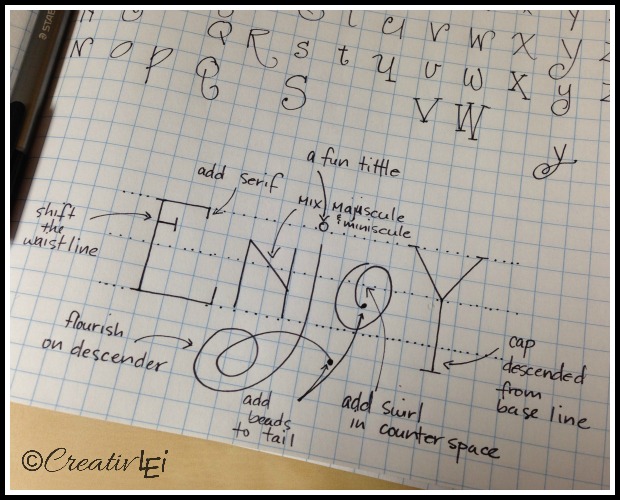 u v w x y z
Q R s t u v w x y z
N o p Q S V W y
a fun tittle
add serif
mix majuscule
& miniscule
shift
the
waistline
ENJoY
flourish
on descender
add
beads
to tail
add swirl
in counter space
cap
descended
from
base line
©CreativLEi